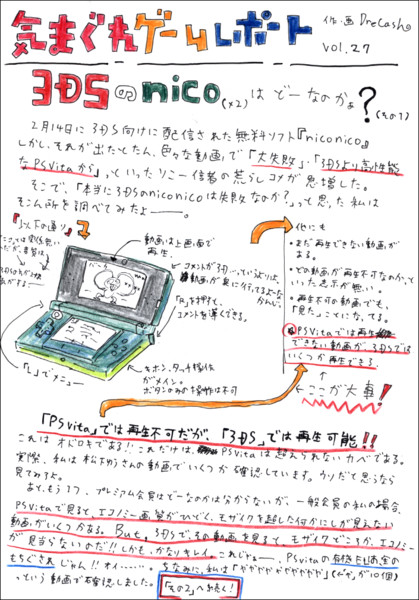 気まぐれゲームレポート
作・画 DreCash
vol.27
3DSのnico(×2)はどーなのかぁ?(その1)
2月14日に3DS向けに配信された無料ソフト『niconico』
しかし、それが出たとたん、色々な動画で「大失敗」・「3DSより高性能
なPSVitaから」っといったソニー信者の荒らしコメが急増した。
そこで、「本当に3DSのniconicoは失敗なのか?」っと思った私は
そこん所を調べてみたよーー。
『以下の通り』
動画は上画面で
再生.
コメントが3D
「A」を押して、
コメントを薄くできる。
「L」でメニュー
ボタン、タッチ操作
がメイン。
ボタンのみの操作は不可
他にも
・まだ再生できない動画が
ある。
・どの動画が再生不可なのか、って
いった表示が無い。
・再生不可の動画でも、
「見た」ことになってる。
PSVitaでは再生
できない動画が、3DSでは
いくつか再生できる.
ここが大事!
「PSVita」では再生不可だが、「3DS」では再生可能!!
これはオドロキである!!これだけは、PSVitaは超えられないカベである。
実際、私は松下ゆうさんの動画でいくつか確認しています。ウソだと思うなら
見てみろよ。
あと、もう1つ、プレミアム会員はどーなのかはわからないが、一般会員の私の場合、
PSVitaで見てると、エコノミー画質がひどく、モザイクを超えた何かにしか見えない
動画がいくつかある。But、3DSで、その動画を見ると、モザイクどころか、エコノミー
が見当らないのだ!!しかも、かなりキレイ。これじゃー、PSVitaの有機ELがお金の
もちぐされじゃん!!オイ・・・・・。ちなみに、私は「やややややややややや」(「や」が10個)
っという動画で確認しました。
「その2」へ続く!